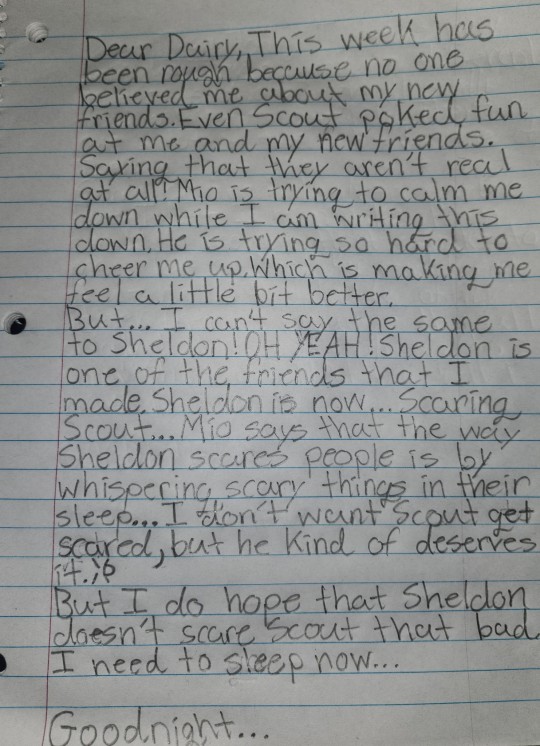 Dear Dairy, This week has
been rough because no one
believed me about my new
friends. Even Scout poked fun
at me and my new friends.
Saying that they aren't real
at all! Mio is trying to calm me
down while I am writing this
down. He is trying so hard to
cheer me up. Which is making me
feel a little bit better.
But... I can't say the same
to Sheldon! OH YEAH! Sheldon is
one of the friends that I
made. Sheldon is now... Scaring
Scout... Mio says that the way
Sheldon scares people is by
whispering scary things in their
sleep... I don't want Scout get
scared, but he kind of deserves
it.
But I do hope that Sheldon
doesn't scare Scout that bad.
I need to sleep now...
Goodnight...